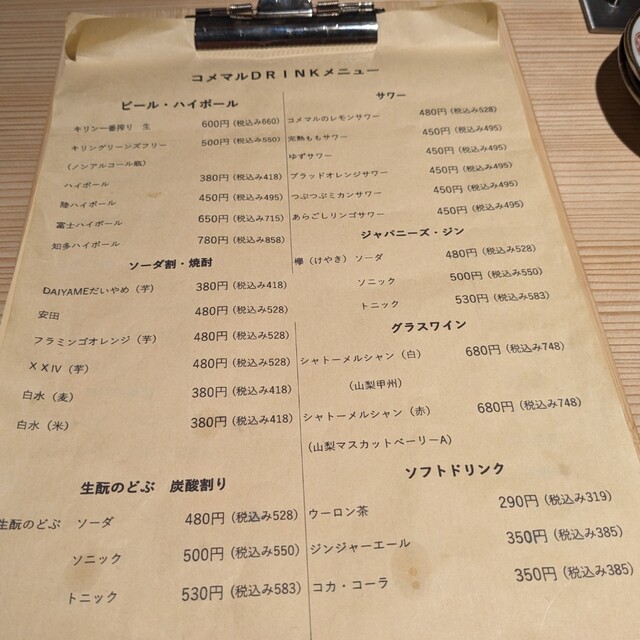 コメマルＤＲＩＮＫメニュー
ビール・ハイボール
キリン一番搾り　生　600円（税込み660）
キリングリーンズフリー　500円（税込み550）
（ノンアルコール瓶）
ハイボール　380円（税込み418）
陸ハイボール　450円（税込み495）
富士ハイボール　650円（税込み715）
知多ハイボール　780円（税込み858）
ソーダ割・焼酎
DAIYAMEだいやめ（芋）　380円（税込み418）
安田　480円（税込み528）
フラミンゴオレンジ（芋）　480円（税込み528）
ＸＸⅣ（芋）　480円（税込み528）
白水（麦）　380円（税込み418）
白水（米）　380円（税込み418）
生酛のどぶ　炭酸割り
生酛のどぶ　ソーダ　480円（税込み528）
ソニック　500円（税込み550）
トニック　530円（税込み583）
サワー
コメマルのレモンサワー　480円（税込み528）
完熟ももサワー　450円（税込み495）
ゆずサワー　450円（税込み495）
ブラッドオレンジサワー　450円（税込み495）
つぶつぶミカンサワー　450円（税込み495）
あらごしリンゴサワー　450円（税込み495）
ジャパニーズ・ジン
欅（けやき）　ソーダ　480円（税込み528）
ソニック　500円（税込み550）
トニック　530円（税込み583）
グラスワイン
シャトーメルシャン（白）　680円（税込み748）
（山梨甲州）
シャトーメルシャン（赤）　680円（税込み748）
（山梨マスカットベーリーA）
ソフトドリンク
ウーロン茶　290円（税込み319）
ジンジャーエール　350円（税込み385）
コカ・コーラ　350円（税込み385）